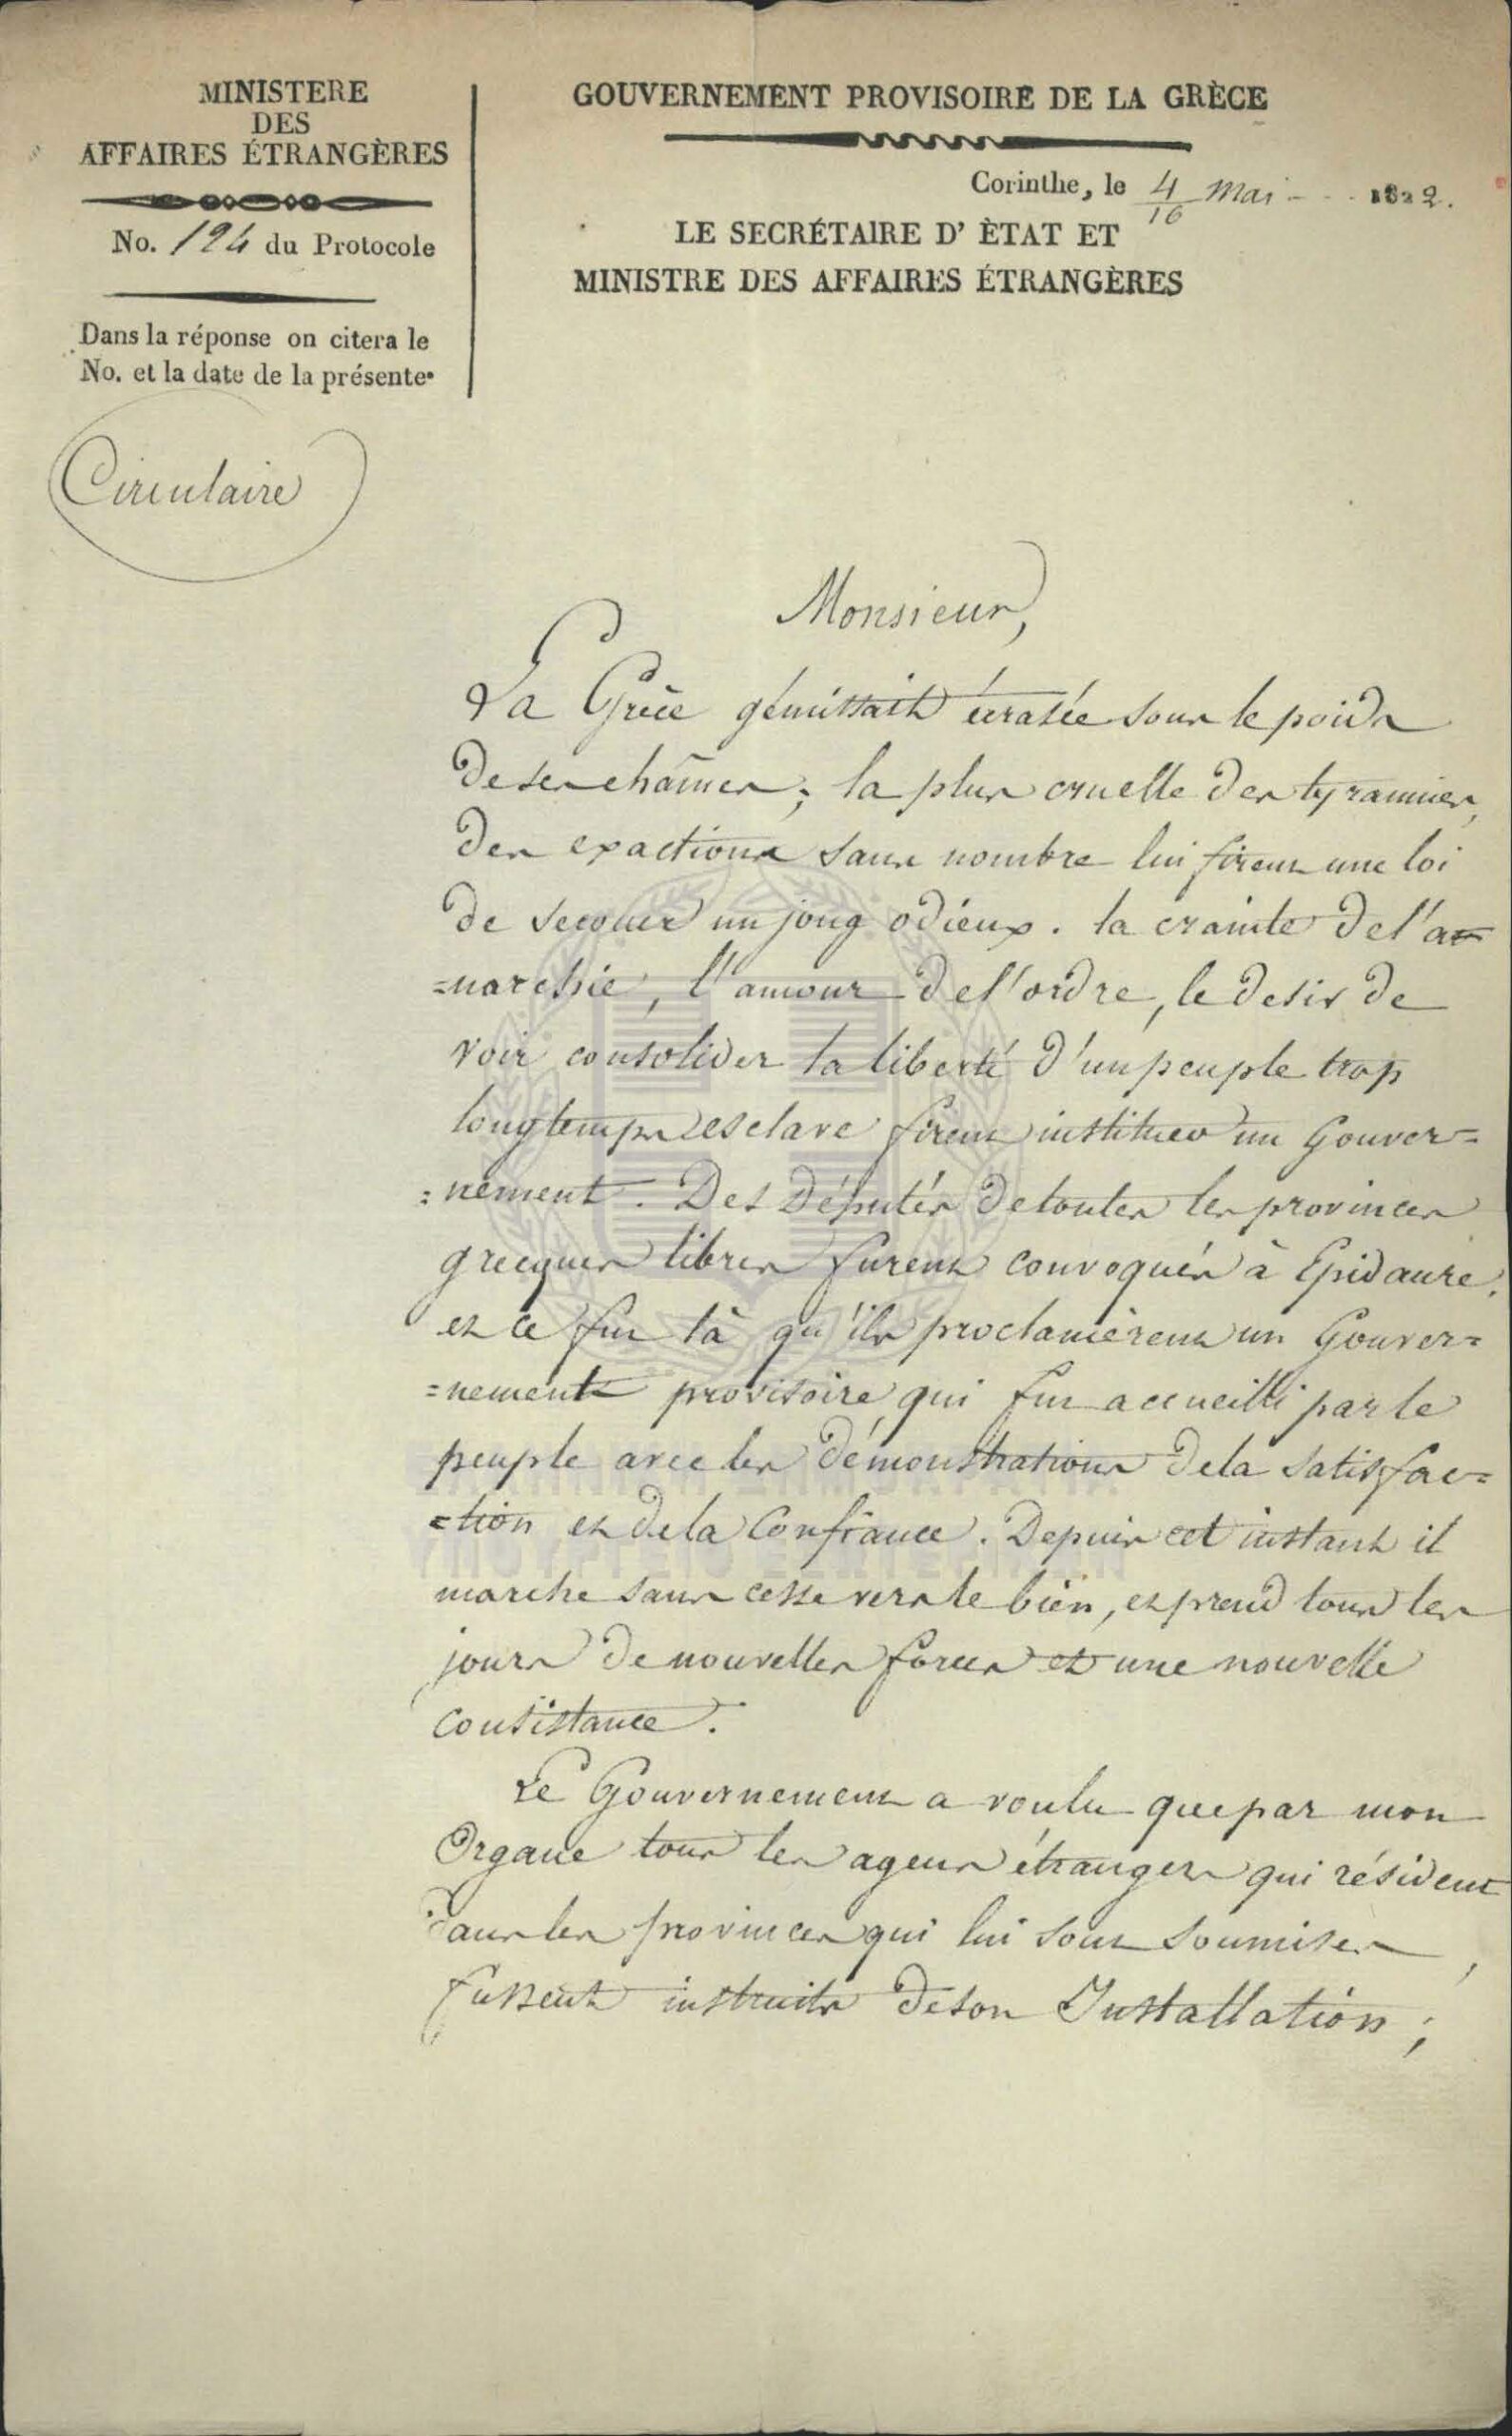 MINISTERE
DES
AFFAIRES ÉTRANGÈRES
No. 124 du Protocole
Dans la réponse on citera le
No. et la date de la présente.
Circulaire
GOUVERNEMENT PROVISOIRE DE LA GRÈCE
Corinthe, le 4/16 Mai - - . 1822.
LE SECRÉTAIRE D' ÈTAT ET
MINISTRE DES AFFAIRES ÉTRANGÈRES
Monsieur,
La Grèce gémissait écrasée sous le poids
de ses chaînes; la plus cruelle des tyrannies,
des exactions sans nombre lui firent une loi
de secouer un joug odieux. la crainte de l'a=
=narchie, l'amour de l'ordre, le desir de
voir consolider la liberté d'un peuple trop
longtemps esclave firent instituer un Gouver=
=nement. Des Députés de toutes les provinces
grecques libres furent convoqués à Epidaure,
et ce fut là qu'ils proclamèrent un Gouver=
=nement provisoire qui fut accueilli par le
peuple avec les démonstrations de la satisfac=
=tion et de la Confiance. Depuis cet instant il
marche sans cesse vers le bien, et prend tous les
jours de nouvelles forces et une nouvelle
consistance.
Le Gouvernement a voulu que par mon
Organe tous les agens étrangers qui résident
dans les provinces qui lui sont soumises,
fussent instruits de son Installation;